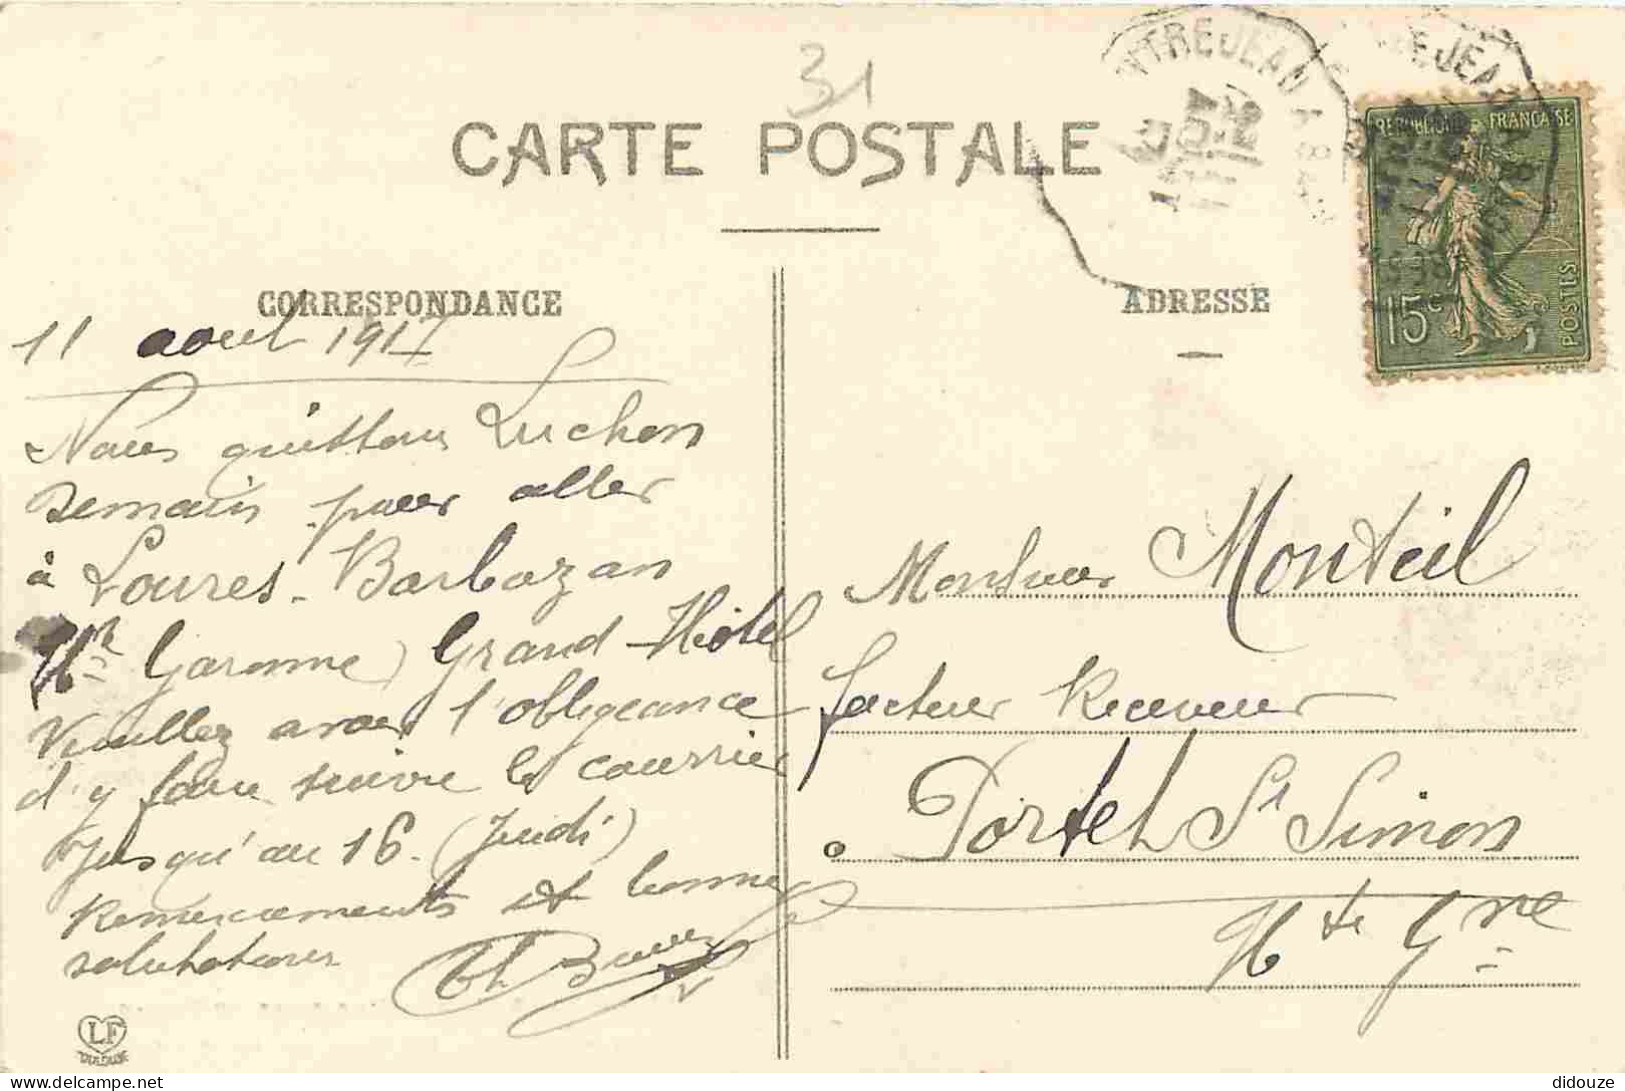 31
CARTE POSTALE
NTREJEAU A
EJEA
REPUBLIQUE FRANCAISE
15c
POSTES
CORRESPONDANCE
11 aout 1917
Nous quittons Luchon
demain pour aller
à Loures-Barbazan
Hte Garonne) Grand-Hôtel
Veuillez avoir l'obligeance
d'y faire suivre le courrier
jusqu'au 16. (Jeudi)
Remerciements et bonnes
salutations
ADRESSE
Monsieur Monteil
facteur Receveur
Portet St Simon
Hte Gne
LF
TOULOUSE
delcampe.net
didouze